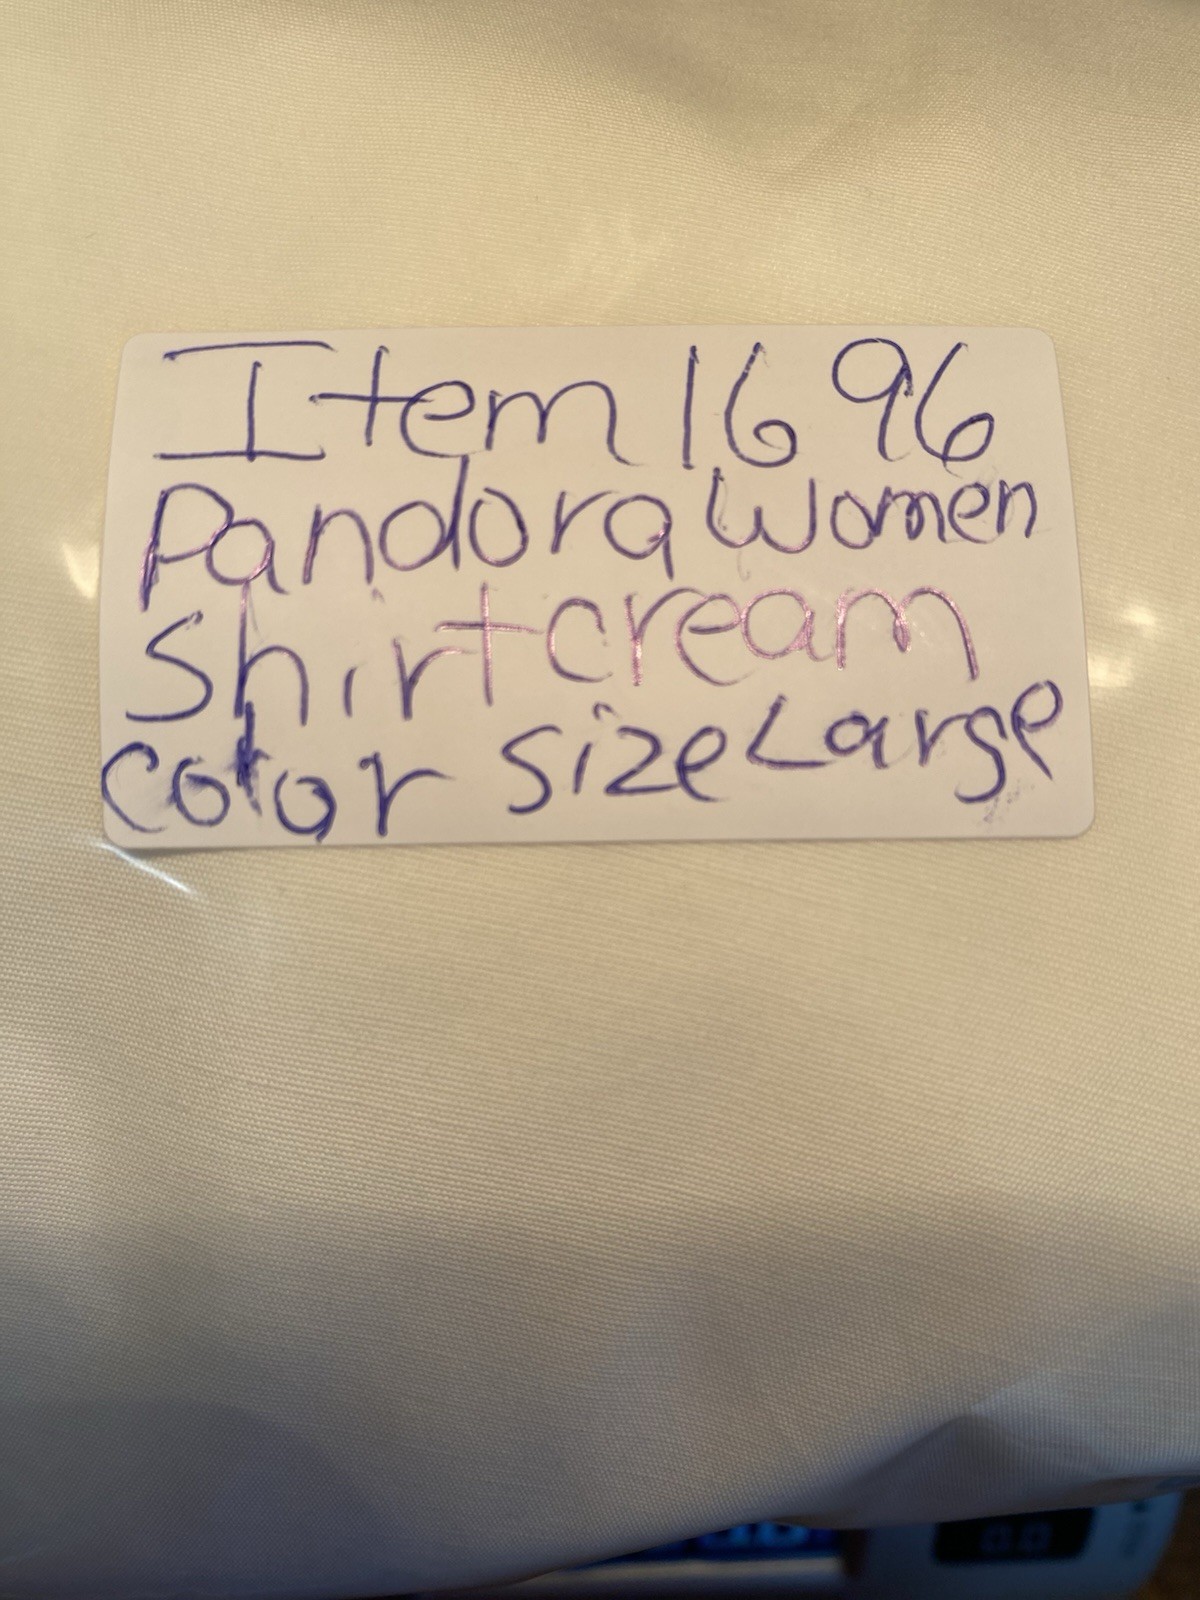 Item 1696
Pandora Women
Shirt cream
color size Large